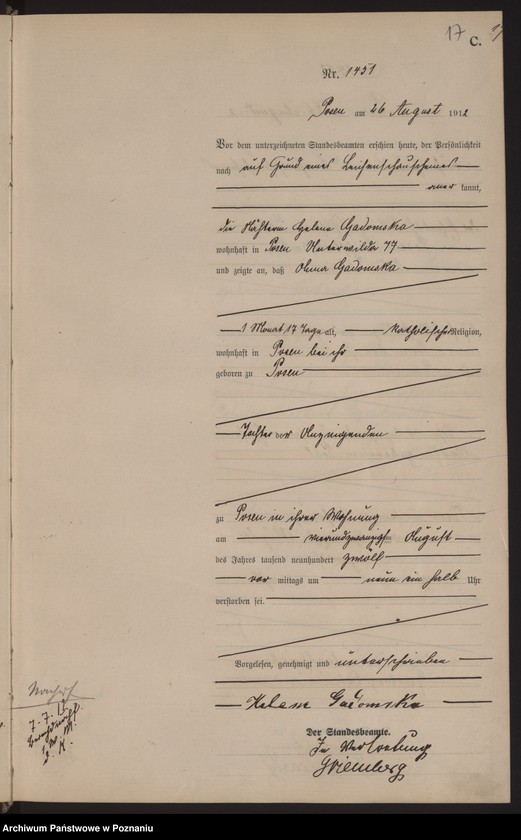 17
C.
Nr. 1451
Posen am 26 August 1912
Vor dem unterzeichneten Standesbeamten erschien heute, der Persönlichkeit
nach auf Grund eines Leichenschauscheines
aner kannt,
die Näherin Helena Gadomska
wohnhaft in Posen Unterwilda 77
und zeigte an, daß Anna Gadomska
1 Monat 17 Tage alt, katholischer Religion,
wohnhaft in Posen bei ihr
geboren zu Posen
Tochter der Anzeigenden
zu Posen in ihrer Wohnung
am vierundzwanzigsten August
des Jahres tausend neunhundert zwölf
vor mittags um neun ein halb Uhr
verstorben sei.
Vorgelesen, genehmigt und unterschrieben
Helena Gadomska
Der Standesbeamte.
In Vertretung
7. 7. 12
Archiwum Państwowe w Poznaniu